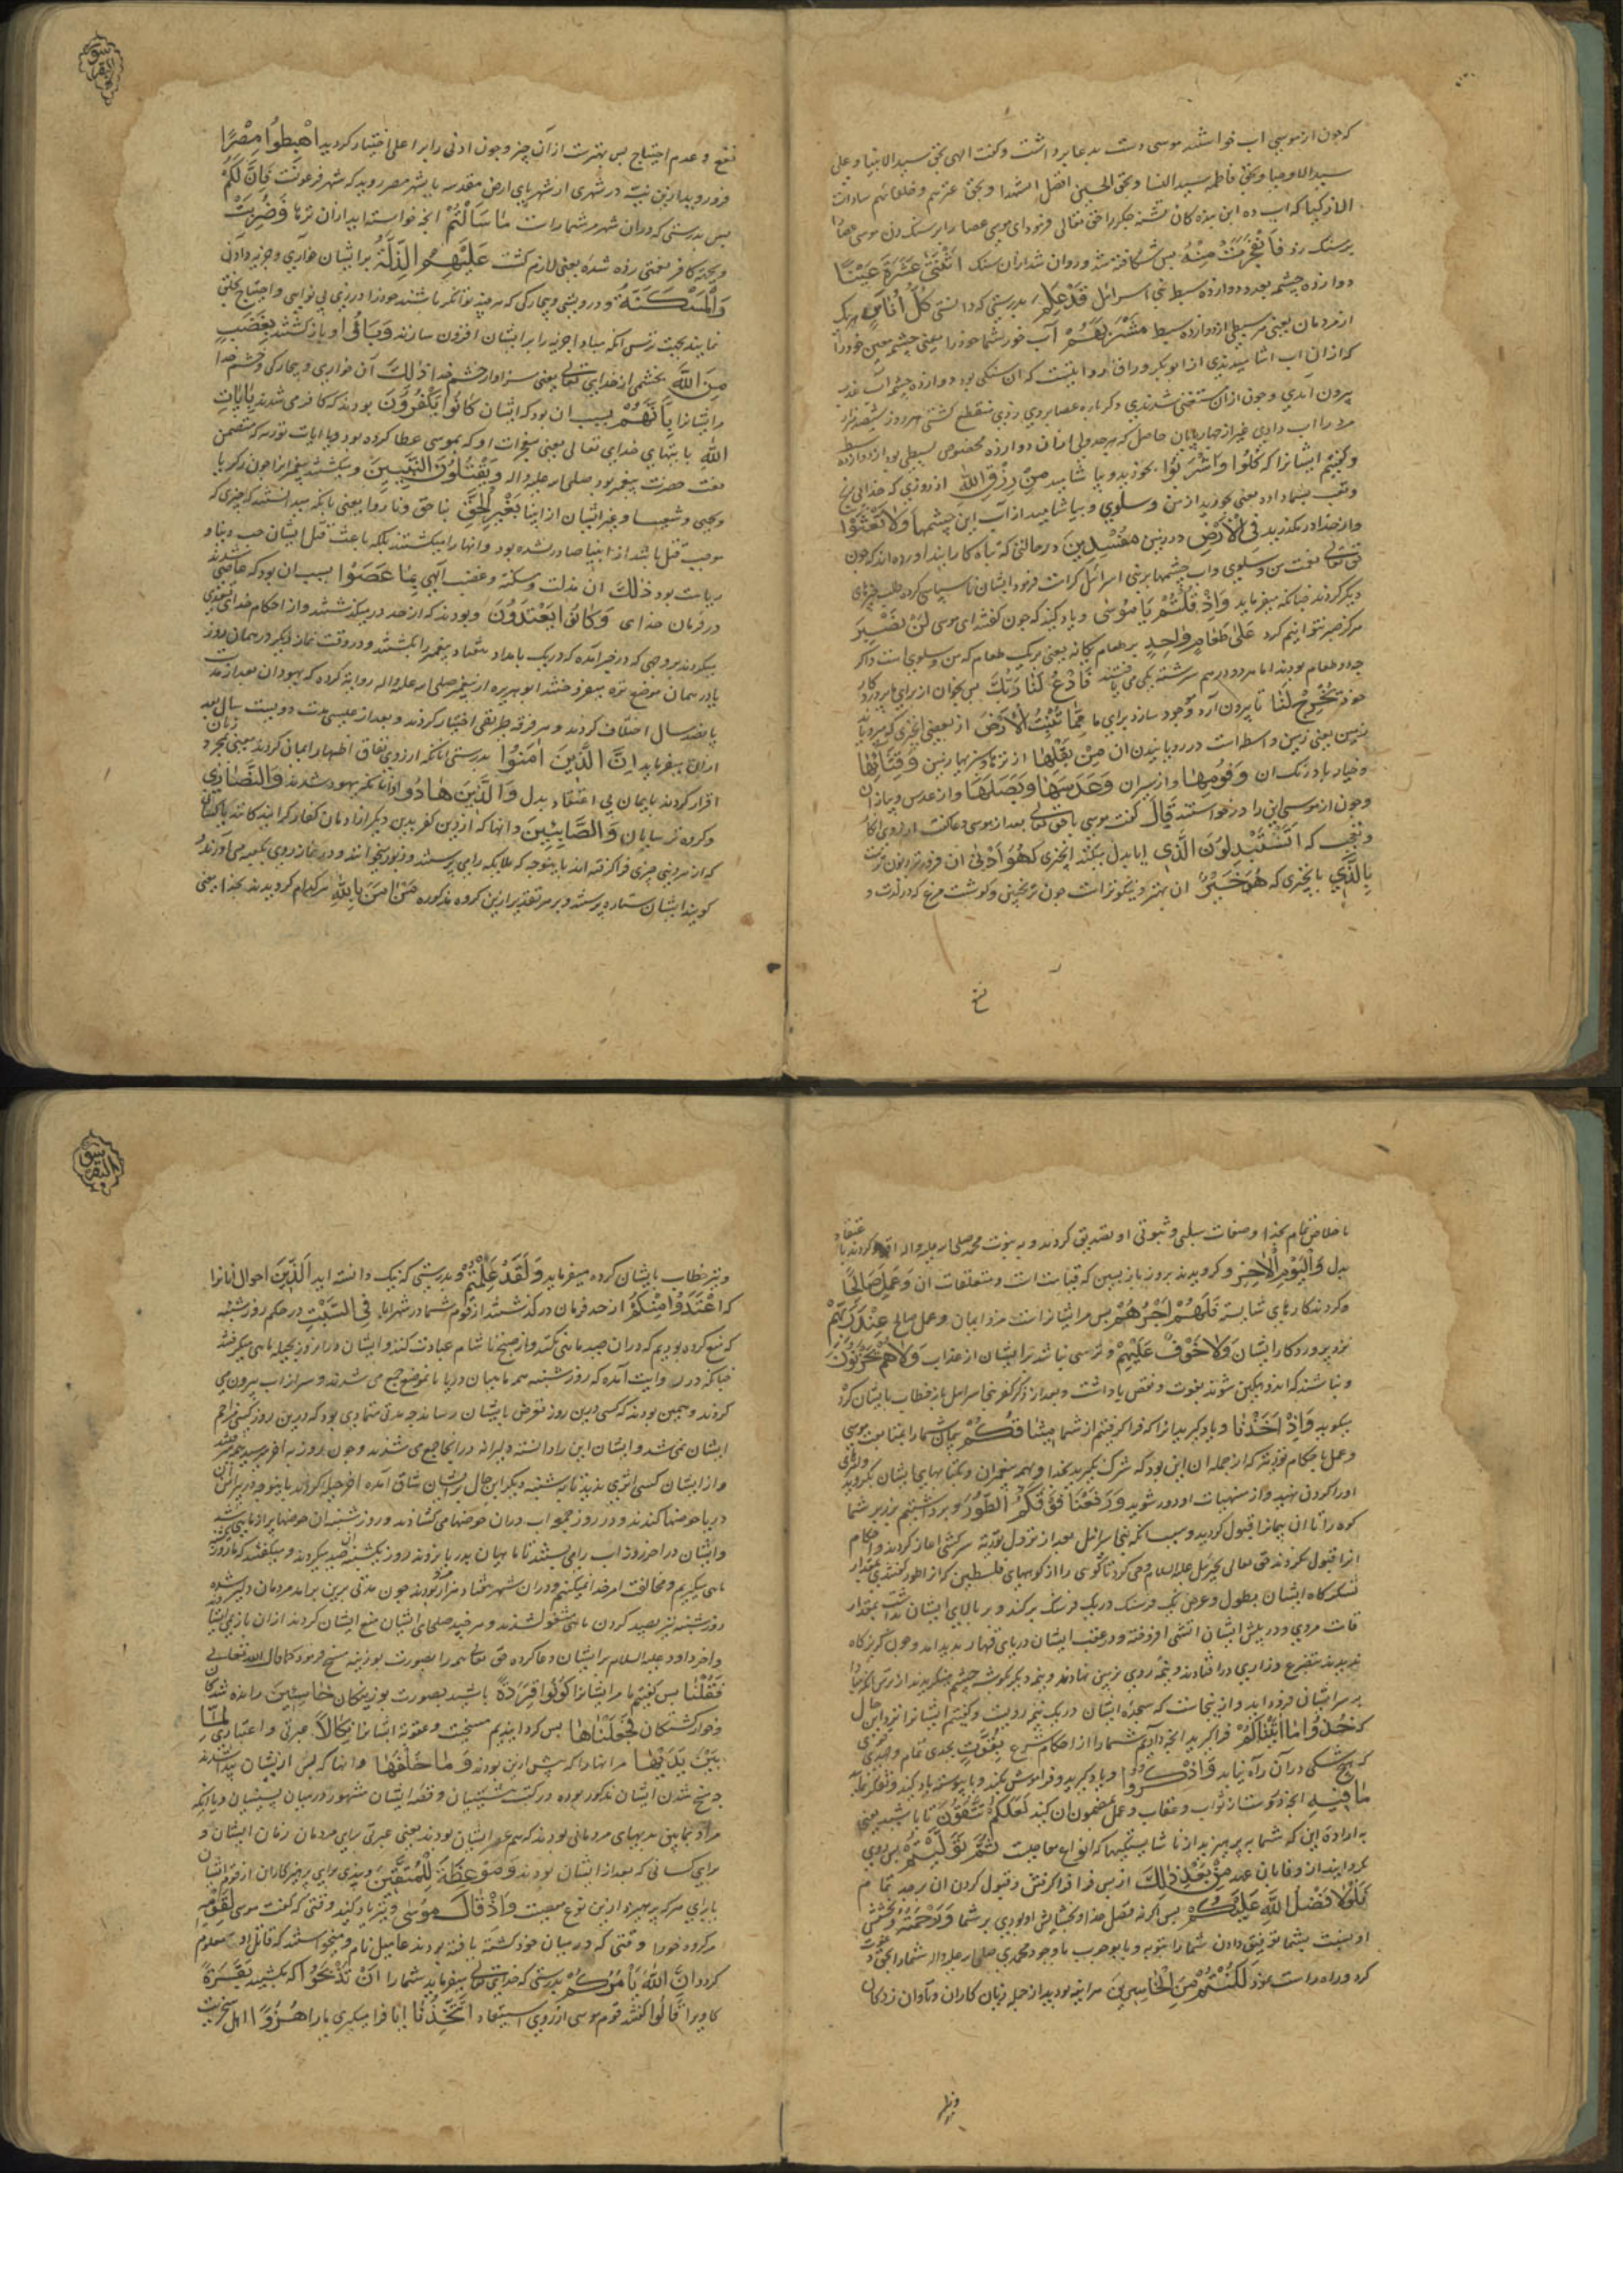 که چون از موسی اب خواستند موسی دست بدعا برداشت و کفت الهی بحق سید الانبیا و علی
سید الاوصیا و بحق فاطمه سید النسا و بحق الحسین افضل الشهدا و بحق عترتهم و خلفائهم سادات
الازکیا که اب ده این بنده کان تشنه جکر را حق تعالی فرمود ای موسی عصا را بر سنک زن موسی عصا
بر سنک زد فَانْفَجَرَتْ مِنْهُ پس شکافته شد و روان شد از ان سنک اثْنَتَىْ عَشْرَةَ عَيْنًا
دوازده چشمه بعدد دوازده سبط بنی اسرائل قَدْ عَلِمَ بدرستی که دانستی كُلُّ اُنَاسٍ هر یک
از مردمان یعنی هر سبطی از دوازده سبط مَشْرَبَهُمْ آب خور شما خود را یعنی چشمه معین خود را
که از ان اب اشامیدندی از ابو بکر وراق روایتست که ان سنکی بود دوازده چشمه آب از
بیرون آمدی و چون از ان مستغنی شدندی دکر باره عصا بر وی زدی منقطع کشتی هر روز ششصد هزار
مرد را اب دادی غیر از چهارپایان
وَكفتیم ایشانرا که كُلُوا وَاشْرَبُوا بخورید و بیاشامید مِنْ رِزْقِ اللهِ از روزی که خدای
وتعب بشما داد یعنی بخورید از من و سلوی و بیاشامید از آب این چشمها وَلَا تَعْثَوْا
و از حد در مکذرید فِى الْاَرْضِ در زمین مُفْسِدِينَ در حالتی که تباه کارانید اورده اند که چون
حق تعالی نعمت من و سلوی و اب چشمها بر بنی اسرائل کرامت فرمود ایشان ناسپاسی کرده طلب چیزهای
دیکر کردند چنانکه میفرماید وَاِذْ قُلْتُمْ يَا مُوسٰى و یاد کنید که چون کفتید ای موسی لَنْ نَصْبِرَ
هرکز صبر نتوانیم کرد عَلٰى طَعَامٍ وَاحِدٍ بر طعام یکانه یعنی بر یک طعام که من و سلوی است و اکر
چه دو طعام بودند اما هر دو در هم سرشته یکی می یافتند فَادْعُ لَنَا رَبَّكَ پس بخوان از برای ما پروردکار
خود يُخْرِجْ لَنَا تا بیرون آرد و موجود سازد برای ما مِمَّا تُنْبِتُ الْاَرْضُ از بعضی انچیزی که میرویاند
زمین یعنی زمین واسطه است در رویانیدن ان مِنْ بَقْلِهَا از تره ها و سبزیهای زمین وَقِثَّائِهَا
و خیار بادرنک ان وَفُومِهَا و از سیر ان وَعَدَسِهَا وَبَصَلِهَا و از عدس و پیاز ان
و چون از موسی این را درخواستند قَالَ کفت موسی یا حق تعالی بعد از موسی دعا کفت از روی انکار
و تعجب که اَتَسْتَبْدِلُونَ الَّذِى ایا بدل میکنید انچیزی که هُوَ اَدْنٰى ان فروتر و دون ترست
بِالَّذِى با چیزی که هُوَ خَيْرٌ ان بهتر و نیکوتر است چون ترنجبین و کوشت مرغ که در لذت و
نفع و عدم احتیاج پس بهترست از ان چیز و چون ادنی را بر اعلی اختیار کردید اهْبِطُوا مِصْرًا
فرو روید ازین تیه در شهری از شهرهای ارض مقدسه یا بشهر مصر روید که شهر فرعونست فَاِنَّ لَكُمْ
پس بدرستی که در ان شهر مر شما راست مَا سَاَلْتُمْ انچه خواسته اید از ان تره ها وَضُرِبَتْ
عَلَيْهِمُ الذِّلَّةُ بر ایشان خواری و جزیه دادن
وَالْمَسْكَنَةُ و درویشی و بیچارکی که هر چند توانکر باشند خود را در زی بی نوایی و احتیاج بخلق
نمایند بجهت ترس انکه مبادا جزیه را بر ایشان افزون سازند وَبَاءُو و باز کشتند بِغَضَبٍ
مِنَ اللهِ بخشمی از خدای تعالی یعنی سزاوار خشم خدا ذٰلِكَ آن خواری و بیچارکی و خشم خدا
مر ایشانرا بِاَنَّهُمْ بسبب ان بود که ایشان كَانُوا يَكْفُرُونَ بودند که کافر می شدند بِاٰيَاتِ
اللهِ بایتهای خدای تعالی یعنی معجزات او که بموسی عطا کرده بود و یا ایات توریه که متضمن
نعت حضرت پیغمبر بود صلی الله علیه و اله وَيَقْتُلُونَ النَّبِيِّينَ و میکشتند پیغمبرانرا چون زکریا
و یحیی و شعیا و غیر ایشان از انبیا بِغَيْرِ الْحَقِّ بناحق و ناروا یعنی با انکه میدانستند که چیزی که
موجب قتل باشد از انبیا صادر نشده بود و انها را میکشتند بلکه باعث قتل ایشان حب دنیا و
ریاست بود ذٰلِكَ ان مذلت و مسکنة و غضب الهی بِمَا عَصَوْا بسبب ان بود که عاصی شدند
در فرمان خدای وَكَانُوا يَعْتَدُونَ و بودند که از حد در میکذشتند و از احکام خدای
میکردند بر وجهی که در خبر آمده که در یک بامداد هفتاد پیغمبر را بکشتند و در وقت نماز دیکر در همان روز
یا در همان موضع تره میفروختند ابو هریره از پیغمبر صلی الله علیه و اله روایة کرده که یهودان بعد از مدت
پانصد سال اختلاف کردند و هر فرقه طریقی اختیار کردند و بعد از عیسی بمدت دویست سال بعد
از ان میفرماید اِنَّ الَّذِينَ اٰمَنُوا بدرستی انانکه از روی نفاق اظهار ایمان کردند یعنی بمجرد زبان
اقرار کردند بایمان بی اعتقاد بدل وَالَّذِينَ هَادُوا و انانکه یهود شدند وَالنَّصَارٰى
و کروه ترسایان وَالصَّابِئِينَ و انها که از دین کفر بدین دیکر
که از هر دینی چیزی فرا کرفته اند باینوجه که ملایکه را می پرستند و زبور میخوانند و در نماز روی بکعبه می آورند و
کویند ایشان ستاره پرستند و بر هر تقدیر ازین کروه مذکوره مَنْ اٰمَنَ بِاللهِ هر کدام کرویدند بخدا یعنی
باخلاص تمام بخدا و صفات سلبی و ثبوتی او تصدیق کردند و به نبوت محمد صلی الله علیه و اله اقرار کردند با اعتقاد
بدل وَالْيَوْمِ الْاٰخِرِ و کرویدند بروز بازپسین که قیامت است و متعلقات ان وَعَمِلَ صَالِحًا
و کردند کارهای شایسته فَلَهُمْ اَجْرُهُمْ پس مر ایشانراست مزد ایمان و عمل صالح عِنْدَ رَبِّهِمْ
نزد پروردکار ایشان وَلَا خَوْفٌ عَلَيْهِمْ و ترسی نباشد بر ایشان از عذاب وَلَا هُمْ يَحْزَنُونَ
و نباشند که اندوهکین شوند بفوت و نقص پاداشت و بعد از ذکر کفر بنی اسرائل باز خطاب بایشان کرد
میکوید وَاِذْ اَخَذْنَا و یاد کنید انرا که فرا کرفتیم از شما مِيثَاقَكُمْ پیمان شما را بمتابعت موسی
و عمل باحکام توریة که از جمله ان این بود که شرک نیارید بخدا و بهمه پیغمبران و کتابهای ایشان بکروید
او را کردن نهید و از منهیات او دور شوید وَرَفَعْنَا فَوْقَكُمُ الطُّورَ و برداشتیم بر زبر شما
کوه را تا ان پیمانرا قبول کردید و سبب انکه بنی اسرائل بعد از نزول توریة سرکشی اغاز کردند و احکام
انرا قبول نکردند حق تعالی جبرئیل علیه السلام را امر کرد تا کوهی را از کوههای فلسطین که از طور کفتندی بمقدار
لشکرکاه ایشان بطول و عرض یک فرسنک در یک فرسنک بر کند و بر بالای ایشان بداشت بمقدار
قامت مردی و در پیش ایشان اتشی افروخته و در عقب ایشان دریای قهار پدید امد و چون کریزکاه
ندیدند بتضرع و زاری در افتادند و نیمه روی بزمین نهادند و بنیمه دیکر بکوشه چشم مینکریدند از ترس انکه مبادا
بر سر ایشان فرود اید و از اینجاست که سجده ایشان در یک نیم رویست و کفتیم ایشانرا نزد این حال
که خُذُوا مَا اٰتَيْنَاكُمْ فرا کیرید انچه دادیم شما را از احکام شرع بِقُوَّةٍ بجدی تمام و جهدی
که هیچ شکی در ان راه نیابد وَاذْكُرُوا و یاد کیرید و فراموش مکنید و یا پیوسته یاد کنید و تفکر نمایید
مَا فِيهِ انچه دروست از ثواب و عقاب و عمل بمضمون ان کنید لَعَلَّكُمْ تَتَّقُونَ تا باشید یعنی
به ارادة این که شما بپرهیزید از ناشایستکیها که انواع معاصیست ثُمَّ تَوَلَّيْتُمْ پس روی
کردانیدید از وفا بان عهد مِنْ بَعْدِ ذٰلِكَ از پس فرا فرا کرفتن و قبول کردن ان بجد تمام
فَلَوْلَا فَضْلُ اللهِ عَلَيْكُمْ پس اکر نه فضل خدا و بخشایش او بودی بر شما وَرَحْمَتُهُ و بخشش
او بنسبت بشما بتوفیق دادن شما را بتوبه و یا بموجب با وجود محمدی صلی الله علیه و اله شما را بحق دعوت
کرد و راه راست نمود لَكُنْتُمْ مِنَ الْخَاسِرِينَ هر اینه بودید از جمله زیان کاران و تاوان زدکان
و نیز خطاب بایشان کرده میفرماید وَلَقَدْ عَلِمْتُمُ و بدرستی که نیک دانسته اید الَّذِينَ احوال انانرا
که اعْتَدَوْا مِنْكُمْ از حد فرمان در کذشتند از قوم شما در شهر ایله فِى السَّبْتِ در حکم روز شنبه
که منع کرده بودیم که در ان صید ماهی نکنند و از صبح تا شام عبادت کنند و ایشان در ان روز بحیله ماهی میکرفتند
چنانکه در روایت آمده که روز شنبه همه ماهیان دریا بانموضع جمع می شدند و سر از اب بیرون می
کردند و همین بودند که کسی در ین روز تعرض بایشان نرساند چه مدتی متمادی بود که در ین روز کسی مزاحم
ایشان نمی شد و ایشان این را دانسته دلیرانه در انجا جمع می شدند و چون روز به اخر میرسید همه میرفتند
و از ایشان کسی اثری ندید تا به شنبه دیکر این حال بر ایشان شاق آمده اخر حیله کردند باینوجه که در پیرامن
دریا حوضها کندند و در روز جمعه اب در ان حوضها می کشادند و روز شنبه ان حوضها پر از ماهی میشد
و ایشان در اخر روز اب را می بستند تا ماهیان بدریا نروند و روز یکشنبه ان صید میکردند و میکفتند که ما روز شنبه
ماهی نمیکیریم و مخالفت امر خدا نمیکنیم و در ان شهر هفتاد هزار مرد بودند چون مدتی برین برامد مردمان دلیر شده
روز شنبه نیز بصید کردن ماهی مشغول شدند و هر چند صلحای ایشان منع ایشان کردند از ان باز نایستادند
و اخر داود علیه السلام بر ایشان دعا کرده حق تعالی همه را بصورت بوزینه مسخ فرمود کما قال الله تعالی
فَقُلْنَا پس کفتیم ما مر ایشانرا كُونُوا قِرَدَةً باشید بصورت بوزینکان خَاسِئِينَ رانده شدکان
و خوار کشتکان فَجَعَلْنَاهَا پس کردانیدیم مسخیت و عقوبة ایشانرا نَكَالًا عبرتی و اعتباری لِمَا
بَيْنَ يَدَيْهَا مر انها را که پیش ازین بودند وَمَا خَلْفَهَا و انها که پس از ایشان پیدا شدند
چه مسخ شدن ایشان مذکور بوده در کتب پیشینیان و قصه ایشان مشهور در میان پسینیان و یا انکه
مراد بما بین یدیها مردمانی بودند که هم عصر ایشان بودند یعنی عبرتی برای مردمان زمان ایشان و
برای کسانی که بعد از ایشان بودند وَمَوْعِظَةً لِلْمُتَّقِينَ و پندی برای پرهیزکاران از قوم ایشان
یا برای هر که بپرهیزد ازین نوع معصیت وَاِذْ قَالَ مُوسٰى و نیز یاد کنید وقتی که کفت موسی لِقَوْمِهِ
مر کروه خود را وقتی که در میان خود کشته یافته بودند عامیل نام و میخواستند که قاتل او معلوم
کردد اِنَّ اللهَ يَاْمُرُكُمْ بدرستی که خدای تعالی میفرماید شما را اَنْ تَذْبَحُوا که بکشید بَقَرَةً
کاوی را قَالُوا کفتند قوم موسی از روی استبعاد اَتَتَّخِذُنَا ایا فرا میکیری ما را هُزُوًا اهل سخریت